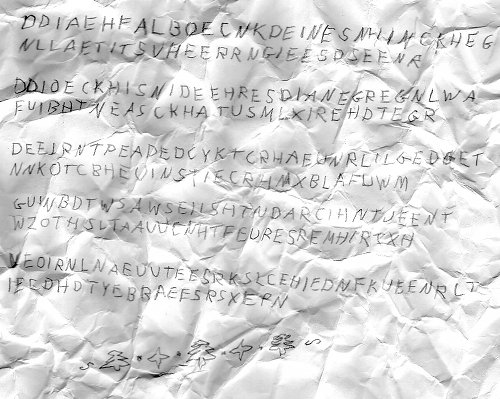 DDIAEHFALBOECNKDEINESNHINCKHEG
NLLAETITSVHEERRNGIEESDSEENR
DDIOECKHISNIDEEHRESDIANEGREGNLWA
FUIBHTNEASCKHATUSMLXIREHDTEGR
DEEIRNTPEADEDCYKTCRHAEUNRLILGEDGET
NNKOTCBHEUINSTIECRHMXBLAFUWM
GUWNBDTWSAWSEILSHTNDARCIHNTUEENT
WZOTHSLTAAUUCNHTFEURESREMHIRTXH
VEOIRNLNAEUUTEESRKSLCEHIEDNFKUEENRLT
IECDHDTYEBRAEFSRSXEPN